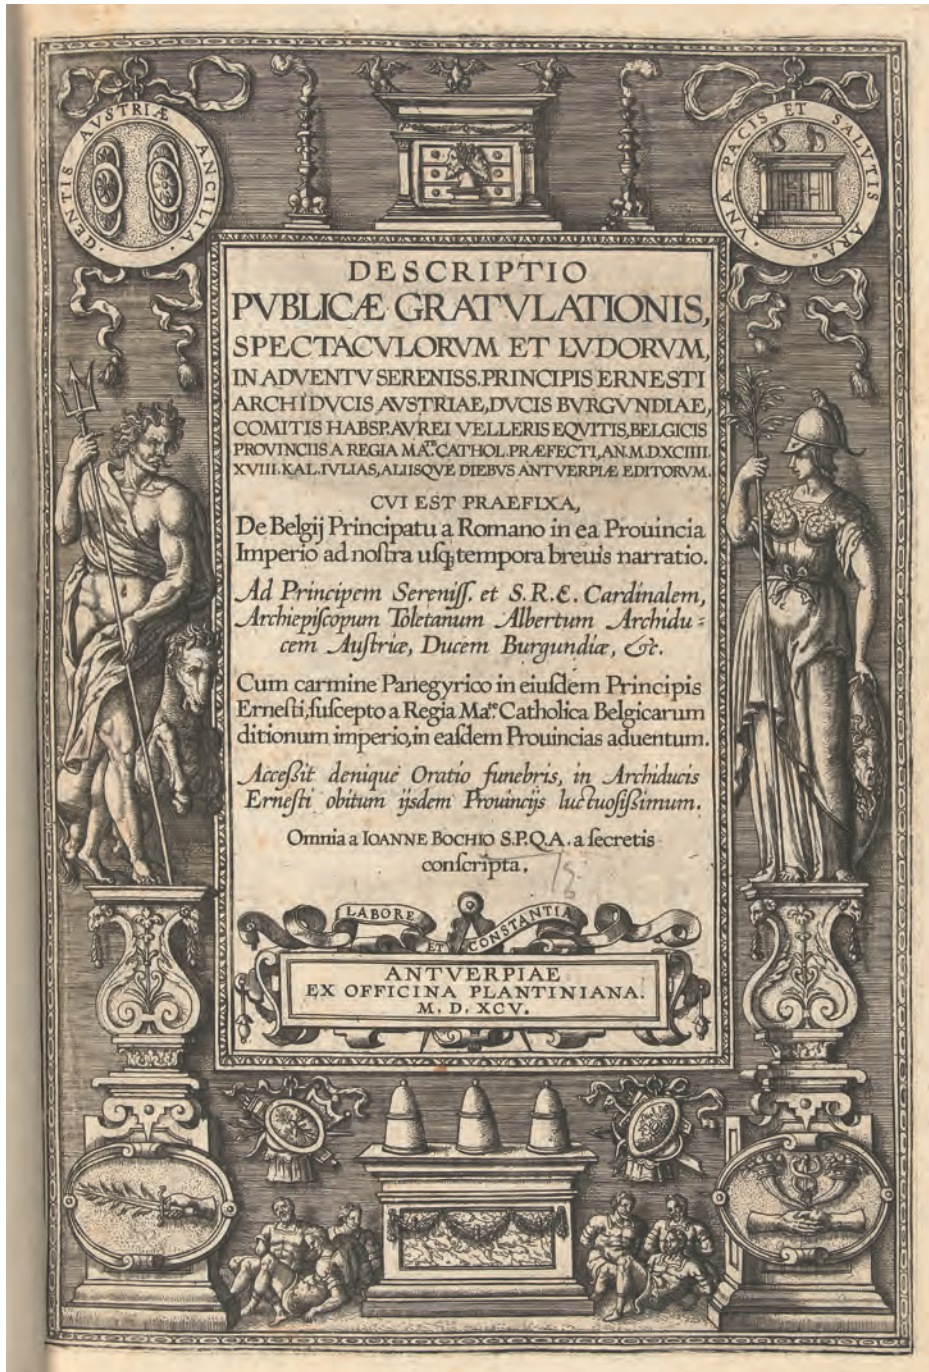 GENTIS AVSTRIÆ ANCILIA.
VNA PACIS ET SALVTIS ARA.
DESCRIPTIO
PVBLICÆ GRATVLATIONIS,
SPECTACVLORVM ET LVDORVM,
IN ADVENTV SERENISS. PRINCIPIS ERNESTI
ARCHIDVCIS AVSTRIAE, DVCIS BVRGVNDIAE,
COMITIS HABSP. AVREI VELLERIS EQVITIS, BELGICIS
PROVINCIIS A REGIA MA.TE CATHOL. PRÆFECTI, AN. M.D.XCIIII.
XVIII. KAL. IVLIAS, ALIISQVE DIEBVS ANTVERPIÆ EDITORVM.
CVI EST PRAEFIXA,
De Belgij Principatu a Romano in ea Prouincia
Imperio ad noſtra uſq; tempora breuis narratio.
Ad Principem Sereniſſ. et S.R.E. Cardinalem,
Archiepiſcopum Toletanum Albertum Archidu-
cem Auſtriæ, Ducem Burgundiæ, &c.
Cum carmine Panegyrico in eiuſdem Principis
Erneſti, ſuſcepto a Regia Ma.te Catholica Belgicarum
ditionum imperio, in eaſdem Prouincias aduentum.
Acceßit denique Oratio funebris, in Archiducis
Erneſti obitum ijsdem Prouincijs luctuoſißimum.
Omnia a IOANNE BOCHIO S.P.Q.A. a ſecretis
conſcripta.
LABORE ET CONSTANTIA
ANTVERPIAE
EX OFFICINA PLANTINIANA.
M. D. XCV.